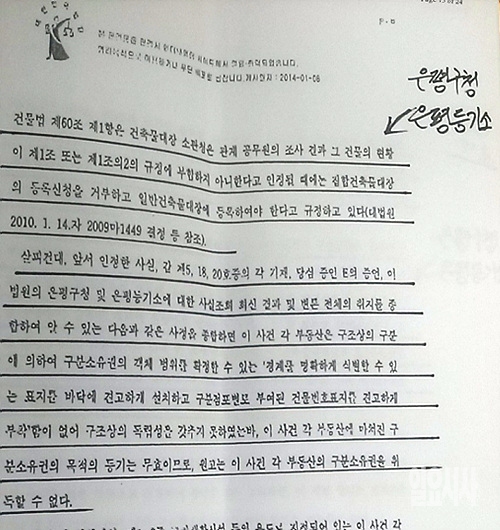 Page 15 of 24
은평구청
은평등기소
게시일자 : 2014-01-06
건물법 제60조 제1항은 건축물대장 소관청은 관계 공무원의 조사 결과 그 건물의 현황
이 제1조 또는 제1조의2의 규정에 부합하지 아니한다고 인정될 때에는 집합건축물대장
의 등록신청을 거부하고 일반건축물대장에 등록하여야 한다고 규정하고 있다(대법원
2010. 1. 14.자 2009마1449 결정 등 참조).
살피건대, 앞서 인정한 사실, 갑 제5, 18, 20호증의 각 기재, 당심 증인 E의 증언, 이
법원의 은평구청 및 은평등기소에 대한 사실조회 회신 결과 및 변론 전체의 취지를 종
합하여 알 수 있는 다음과 같은 사정을 종합하면 이 사건 각 부동산은 구조상의 구분
에 의하여 구분소유권의 객체 범위를 확정할 수 있는 '경계를 명확하게 식별할 수 있
는 표지를 바닥에 견고하게 설치하고 구분점포별로 부여된 건물번호표지를 견고하게
부착'함이 없어 구조상의 독립성을 갖추지 못하였는바, 이 사건 각 부동산에 마쳐진 구
분소유권의 목적의 등기는 무효이므로, 원고는 이 사건 각 부동산의 구분소유권을 취
득할 수 없다.
지정되어 있는 이 사건 각